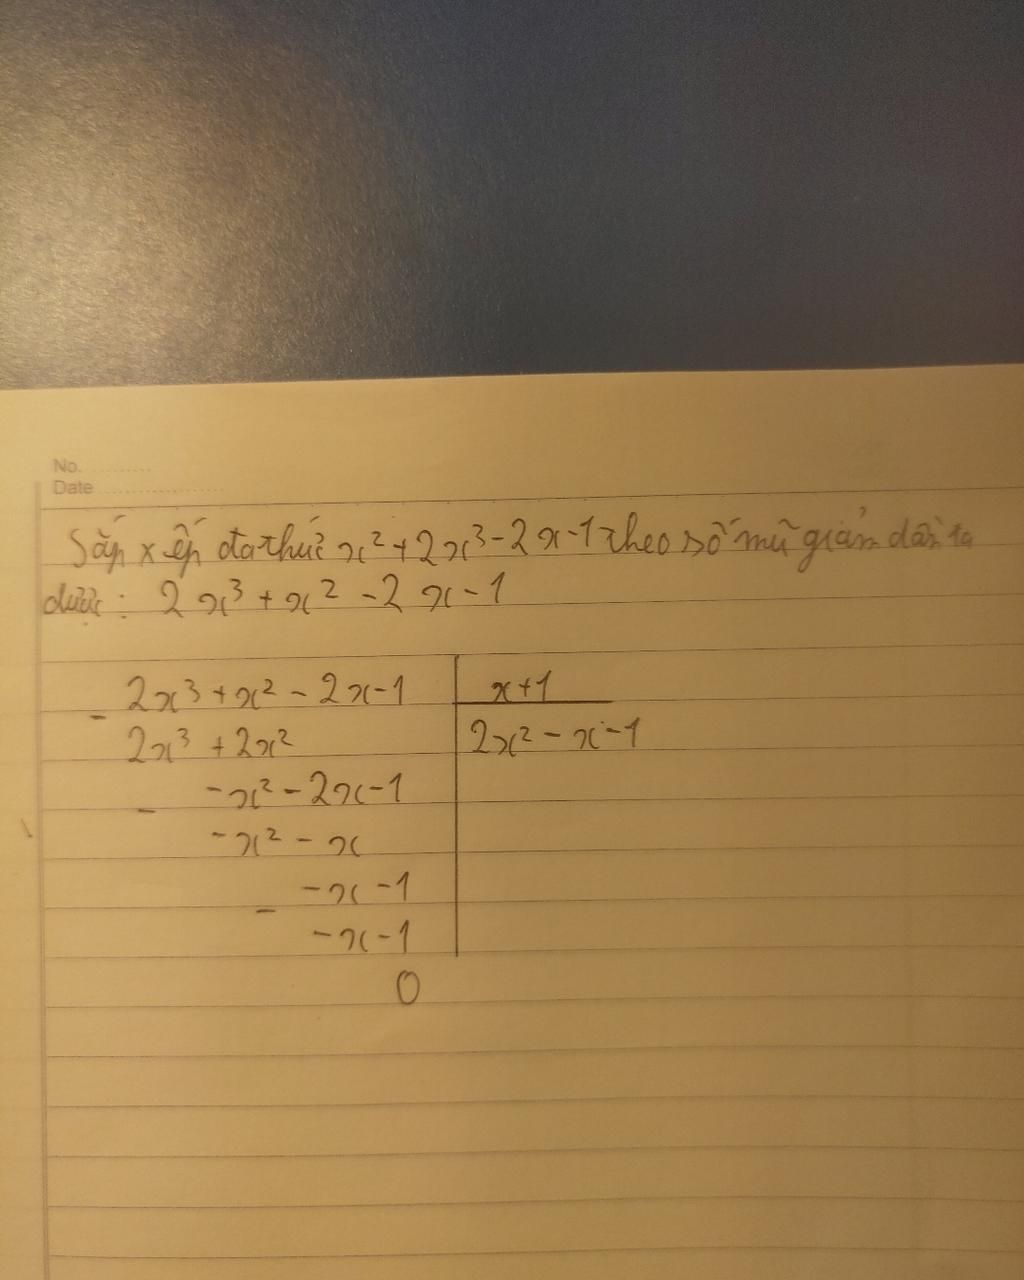 No. ..........
Date ....................
Sắp xếp đa thức x² + 2x³ - 2x - 1 theo số mũ giảm dần ta
được: 2x³ + x² - 2x - 1
- 2x³ + x² - 2x - 1 | x + 1
2x³ + 2x² | 2x² - x - 1
- -x² - 2x - 1
-x² - x
- -x - 1
-x - 1
0